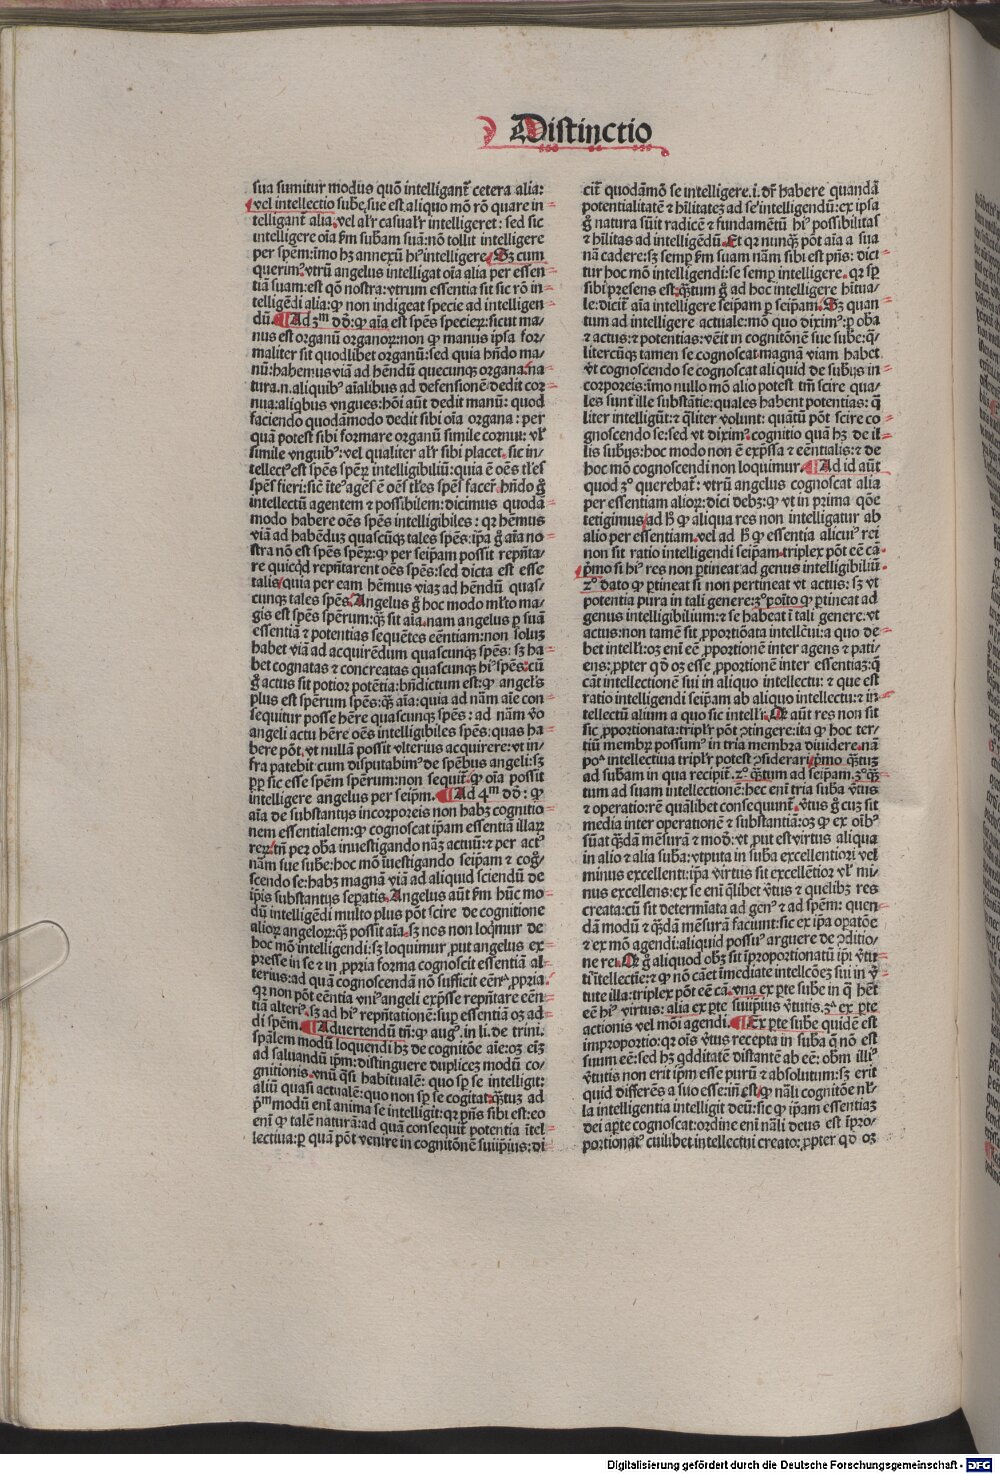 Distinctio
sua sumitur modus quō intelligant̄ cetera alia:
vel intellectio sube̅ sue est aliquo mō rō quare in
telligant̄ alia. vel al'r casual'r intelligeret: sed sic
intelligere oīa ẜm subam̄ suā: nō tollit intelligere
per spēm: imo hꝫ annexū hiꝰ intelligere. Sꝫ cum
querimꝰ vtrū angelus intelligat oīa alia per essen
tiā suam: est qō nostra: vtrum essentia sit sic rō in
telligēdi alia: ꝙ non indigeat specie ad intelligen
dū. Ad 3ᵐ dd̄: ꝙ aīa est spēs specieꝝ: sicut ma
nus est organū organoꝝ: non ꝙ manus ipsa for
maliter sit quodlibet organū: sed quia hn̄do ma
nū: habemus viā ad hēndū quecunqꝫ organa. na
tura.n. aliquibꝰ aīalibus ad defensionē dedit cor
nua: aliqbus vngues: hōi aūt dedit manū: quod
faciendo quodāmodo dedit sibi oīa organa: per
quā potest sibi formare organū simile cornui: vl'
simile vnguibꝰ: vel qualiter al'r sibi placet. sic in
tellectꝰ est spēs spēꝝ intelligibiliū: quia ē oēs tl'es
spēs fieri: sic̄ iteꝰ agēs ē oēs tl'es spēs facerꝭ. hn̄do g̊
intellectū agentem ⁊ possibilem: dicimus quoda
modo habere oēs spēs intelligibiles: qꝛ hēmus
viā ad habēduꝫ quascūqꝫ tales spēs: ip̄a g̊ aīa no
stra nō est spēs spēꝝ: ꝙ per seip̄am possit repn̄ta
re quicqd repn̄tarent oēs spēs: sed dicta est esse
talis quia per eam hēmus viaꝫ ad hēndū quas
cunqꝫ tales spēs. Angelus g̊ hoc modo ml'to ma
gis est spēs spērum: qꝫ̄ sit aīa. nam angelus ꝑ suā
essentiā ⁊ potentias sequētes eēntiam: non soluꝫ
habet viā ad acquirēdum quascunqꝫ spēs: sꝫ ha
bet cognatas ⁊ concreatas quascunqꝫ hiꝰ spēs: cū
g̊ actus sit potior potētia: bn̄ dictum est: ꝙ angel's
plus est spērum spēs: qꝫ̄ aīa: quia ad nām aīe con
sequitur posse hēre quascunqꝫ spēs: ad nām v̊o
angeli actu hēre oēs intelligibiles spēs: quas ha
bere pōt, vt nullā possit vlterius acquirere: vt in
fra patebit cum disputabimꝰ de spēbus angeli: sꝫ
ꝓp sic esse spēm spērum: non sequit̄: ꝙ oīa possit
intelligere angelus per seip̄m. Ad 4ᵐ dd̄: ꝙ
aīa de substantijs incorporeis non habꝫ cognitio
nem essentialem: ꝙ cognoscat ip̄am essentiā illaꝝ
reꝝ: tn̄ per oba inuestigando nāꝫ actuū: ⁊ per actꝰ
nām sue sube: hoc mō iuestigando seip̄am ⁊ cog
scendo se: habꝫ magnā viā ad aliquid sciendū de
ip̄is substantijs sepatis. Angelus aūt ẜm hūc mo
dū intelligēdi multo plus pōt scire de cognitione
alioꝝ angeloꝝ: qꝫ̄ possit aīa. sꝫ nos non loqmur de
hoc mō intelligendi: sꝫ loquimur, put angelus ex
presse in se ⁊ in ꝓpria forma cognoscit essentiā al
terius: ad quā cognoscendā nō sufficit eēnᵃ ꝓpria.
qꝛ non pōt eēntia vniꝰ angeli exp̄sse repn̄tare eēn
tiā alteriꝰ. sꝫ ad hiꝰ repn̄tationē: sup essentiā oꝫ ad
di spēm. Aduertendū tn̄: ꝙ augꝰ. in li. de trini.
spālem modū loquendi hꝫ de cognitōe aīe: oꝫ eīꝫ
ad saluandū ip̄m: distinguere duplicez modū co
gnitionis. vnū qꝫsi habitualē: quo sp se intelligit:
aliū quasi actualē: quo non sp se cogitat: qꝫ̄tuꝫ ad
p̄ᵐ modū eni anima se intelligit: qꝛ pn̄s sibi est: eo
enī ꝙ talē naturā: ad quā consequit̄ potentia ītel
lectiua: ꝑ quā pōt venire in cognitōnē suiip̄ius: di
cit̄ quodāmō se intelligere. i. dr̄ habere quandā
potentialitatē ⁊ hīlitateꝫ ad se intelligendū: ex ipsa
g̊ natura sūit radicē ⁊ fundamētū hiꝰ possibilitas
⁊ hīlitas ad intelligēdū. Et qꝛ nunqꝫ̄ pōt aīa a sua
nā cadere: sꝫ semp ẜm suam nām sibi est pn̄s: dici
tur hoc mō intelligendi: se semp intelligere. qꝛ sp
sibi presens est: qꝫ̄tum g̊ ad hoc intelligere hitua
le: dicit̄ aīa intelligere seip̄am ꝑ seip̄am. Sꝫ quan
tum ad intelligere actuale: mō quo diximꝰ: ꝑ oba
⁊ actus: ⁊ potentias: vēit in cognitōnē sue sube: q̄
litercūqꝫ tamen se cognoscat magnā viam habet
vt cognoscendo se cognoscat aliquid de subijs in
corporeis: imo nullo mō alio potest tm̄ scire qua
les sunt ille substātie: quales habent potentias: q̄
liter intelligūt: ⁊ qliter volunt: quātū pōt scire co
gnoscendo se: sed vt diximꝰ. cognitio quā hꝫ de il
lis subijs: hoc modo non ē exp̄ssa ⁊ eēntialis: ⁊ de
hoc mō cognoscendi non loquimur. Ad id aūt
quod 3ᵒ querebat̄: vtrū angelus cognoscat alia
per essentiam alioꝝ: dici debꝫ: ꝙ vt in prima qōe
tetigimus ad ħ ꝙ aliqua res non intelligatur ab
alio per essentiam. vel ad ħ ꝙ essentia alicuiꝰ rei
non sit ratio intelligendi seip̄am. triplex pōt eē cā.
p̄mo si hiꝰ res non ꝑtineat ad genus intelligibiliū.
2ᵒ dato ꝙ ꝑtineat si non pertineat vt actus: sꝫ vt
potentia pura in tali genere: 3ᵒ poīto ꝙ ꝑtineat ad
genus intelligibilium: ⁊ se habeat ī tali genere: vt
actus: non tamē sit ꝓportiōata intellēcui: a quo de
bet intelli: oꝫ enī eē ꝓportionē inter agens ⁊ pati
ens: ꝓpter qd oꝫ esse ꝓportionē inter essentiaꝫ: q̄
cāt intellectionē sui in aliquo intellectu: ⁊ que est
ratio intelligendi seip̄am ab aliquo intellectu: ⁊ in
tellectū alium a quo sic intell'r. Qꝛ aūt res non sit
sic ꝓportionata: tripl'r pōt ꝯtingere: ita ꝙ hoc ter
tiū membꝝ possumꝰ in tria membra diuidere. nā
poᵃ intellectiua tripl'r potest ꝯsiderari. p̄mo qꝫ̄tuꝫ
ad subam in qua recipit̄. 2ᵒ qꝫ̄tum ad seip̄am. 3ᵒ qꝫ̄
tum ad suam intellectionē: hec enī tria suba v̄tus
⁊ operatio: rē qualibet consequunt̄. v̄tus g̊ cuꝫ sit
media inter operationē ⁊ substantiā: oꝫ ꝙ ex oībꝰ
sūat qꝫ̄dā mēsurā ⁊ modū: vt prout est virtus aliqua
in alio ⁊ alia suba: vtputa in suba excellentiori vel
minus excellenti: ip̄a virtus sit excellētior vl' mi
nus excellens: ex se enī qlibet v̄tus ⁊ quelibꝫ res
creata: cū sit determīata ad genꝰ ⁊ ad spēm: quen
dā modū ⁊ qꝫ̄dā mēsurā faciunt: sic ex ip̄a opatōe
⁊ ex mō agendi: aliquid possuꝰ arguere de ꝯditio
ne rei. Qꝛ g̊ aliquod obꝫ sit īproportionatū ip̄i v̄tu
ti ītellectiē: ⁊ ꝙ nō cāet īmediate intellcōeꝫ sui in v̄
tute illa: triplex pōt eē cā. vna ex ꝑte sube in q̄ hēt
eē hiꝰ virtus: alia ex ꝑte suiip̄ius v̄tutis. 3ᵃ ex ꝑte
actionis vel mōi agendi. Ex ꝑte sube quidē est
improportio: qꝛ oīs v̄tus recepta in suba q̄ nō est
suum eē: sed hꝫ qdditatē distantē ab eē: obm illiꝰ
v̄tutis non erit ip̄m esse purū ⁊ absolutum: sꝫ erit
quid differēs a suo esse: iñ est ꝙ nāli cognitōe nl'
la intelligentia intelligit deū: sic ꝙ ip̄am essentiaꝫ
dei aꝑte cognoscat: ordine enī nāli deus est īpro
portionatꝰ cuilibet intellectui creato: ꝓpter qd oꝫ
Digitalisierung gefördert durch die Deutsche Forschungsgemeinschaft - DFG